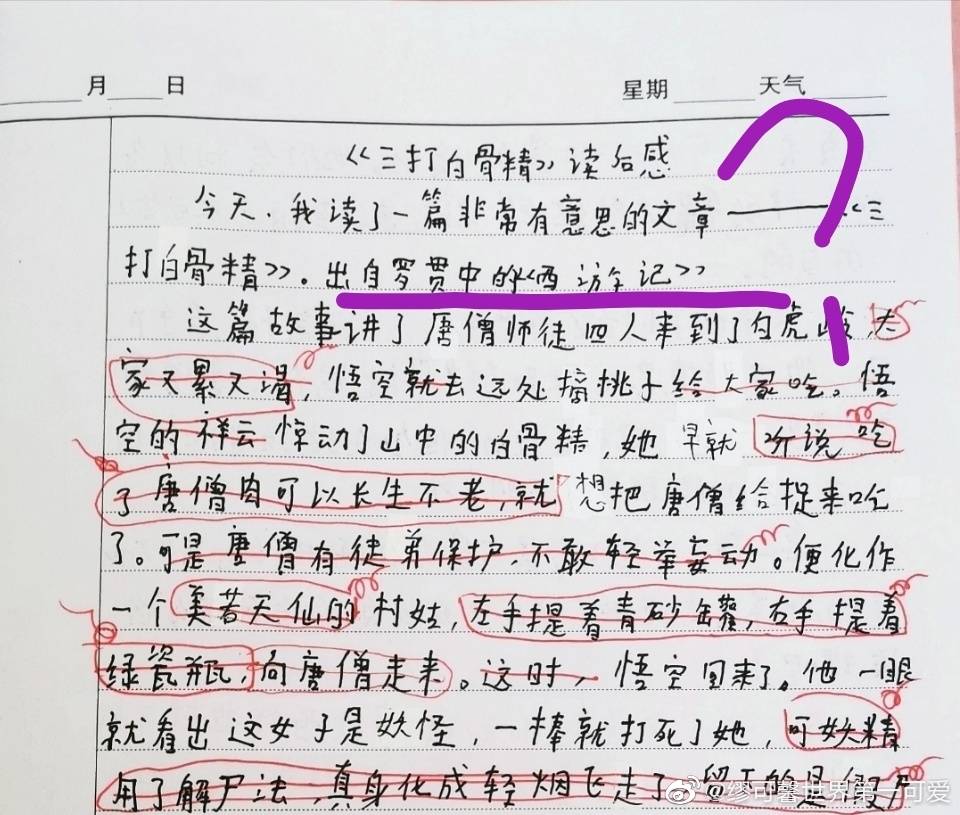 月 日 星期 天气
《三打白骨精》读后感
今天，我读了一篇非常有意思的文章——《三
打白骨精》。出自罗贯中的《西游记》
这篇故事讲了唐僧师徒四人来到了白虎岭，大
家又累又渴，悟空就去远处摘桃子给大家吃。悟
空的祥云惊动了山中的白骨精，她早就听说吃
了唐僧肉可以长生不老，就想把唐僧给捉来吃
了。可是唐僧有徒弟保护，不敢轻举妄动。便化作
一个美若天仙的村姑，左手提着青砂罐，右手提着
绿瓷瓶，向唐僧走来。这时，悟空回来了。他一眼
就看出这女子是妖怪，一棒就打死了她，可妖精
用了解尸法，真身化成轻烟飞走了，留下的是假尸
@缪可馨世界第一可爱